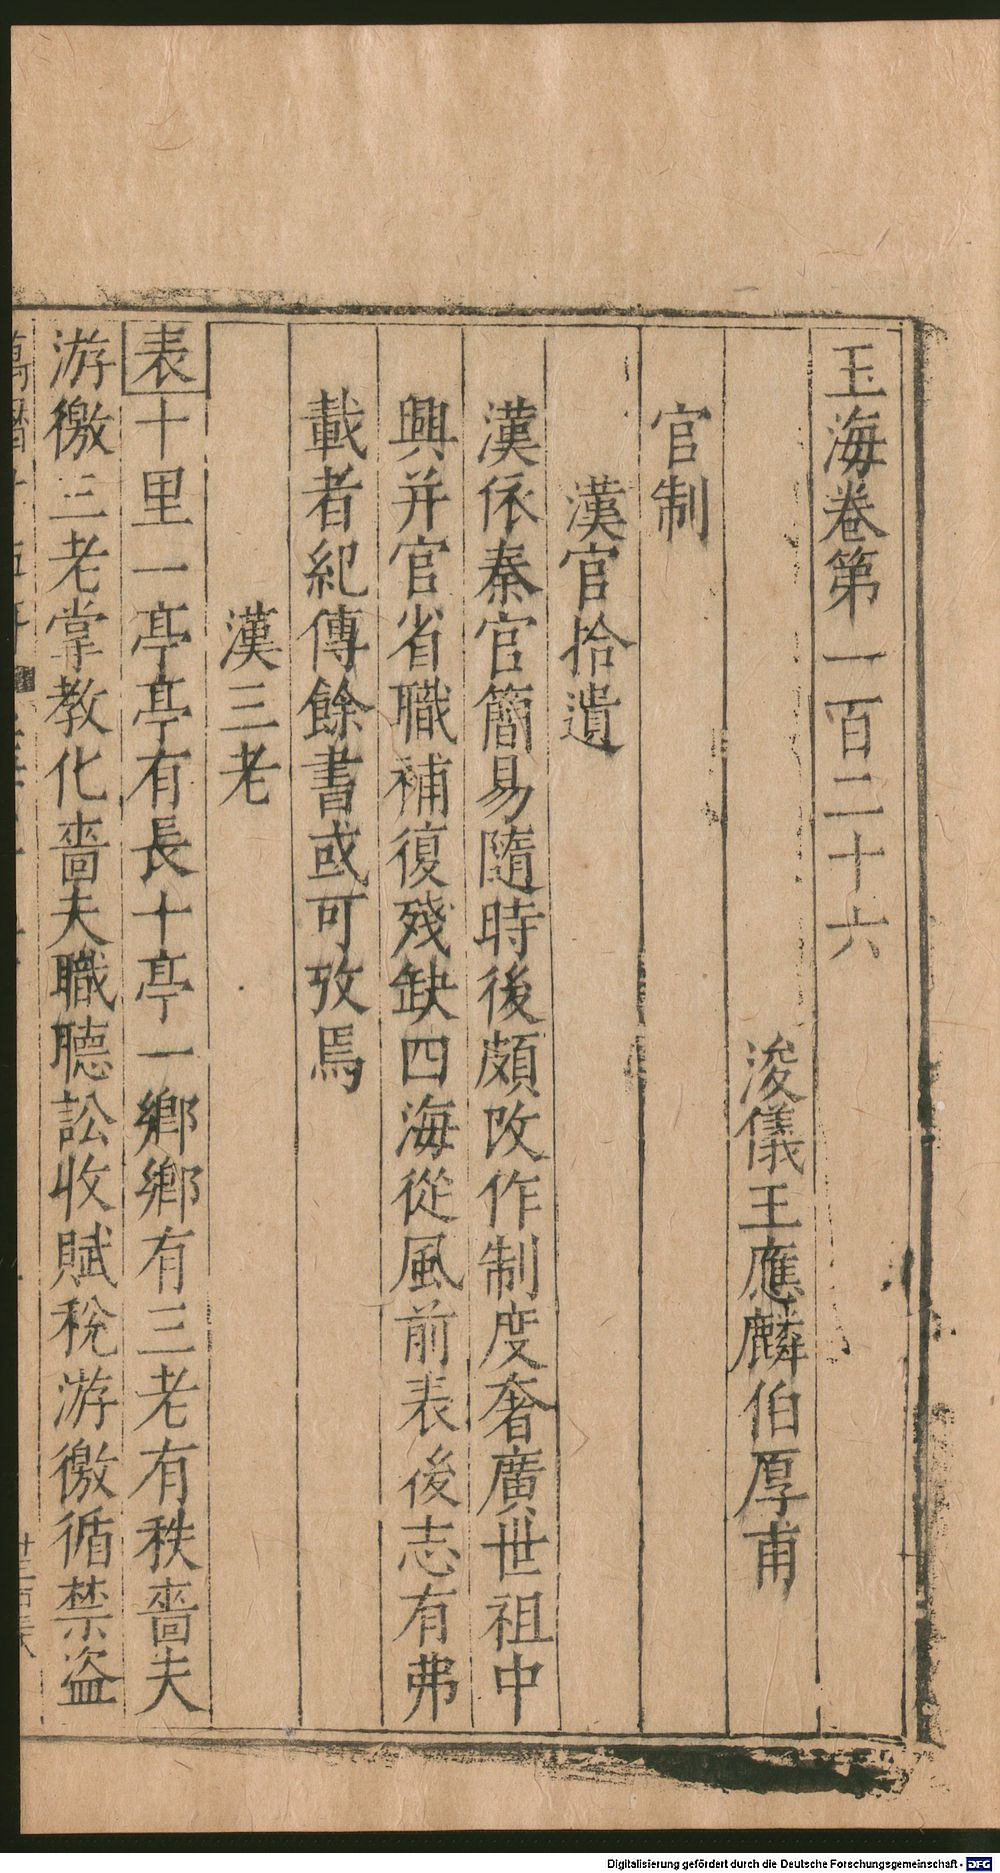 玉海卷第一百二十六
浚儀王應麟伯厚甫
官制
漢官拾遺
漢依秦官簡易隨時後頗改作制度奢廣世祖中
興并官省職補復殘缺四海從風前表後志有弗
載者紀傳餘書或可攷焉
漢三老
表十里一亭亭有長十亭一鄉鄉有三老有秩嗇夫
游徼三老掌教化嗇夫職聽訟收賦稅游徼循禁盜
Digitalisierung gefördert durch die Deutsche Forschungsgemeinschaft - DFG